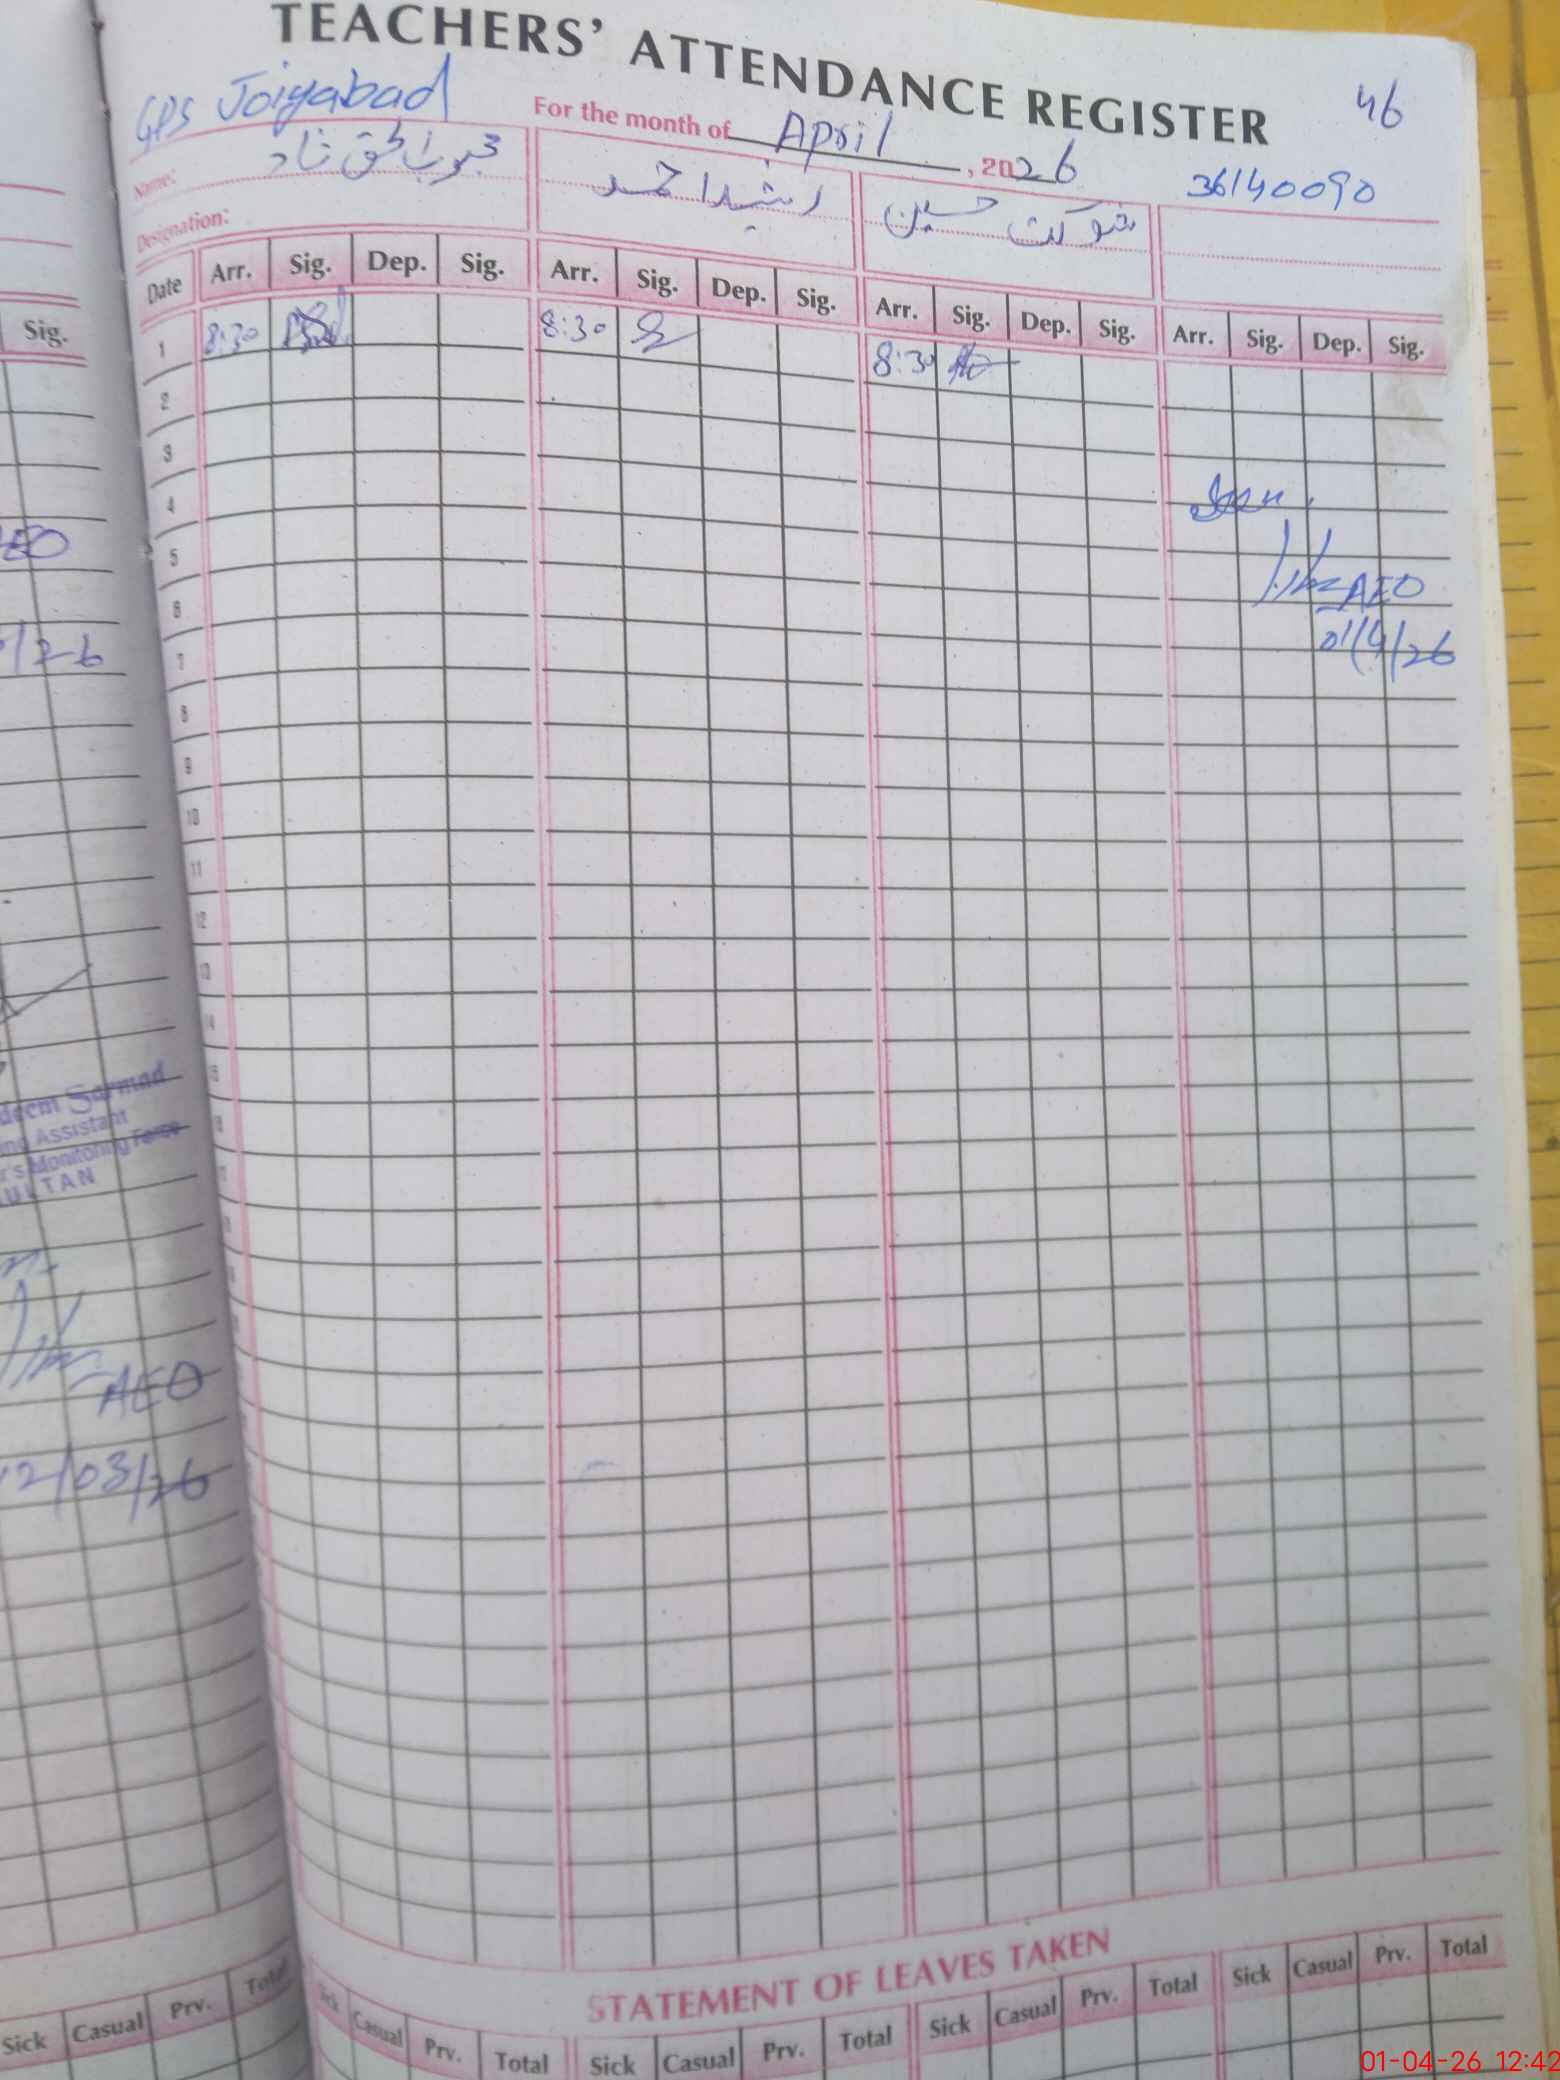 TEACHERS' ATTENDANCE REGISTER
46
GPS Joiyabad
For the month of April, 2026
36140090
Name:
رشید احمد
شوکت حسین
Designation:
Date Arr. Sig. Dep. Sig. Arr. Sig. Dep. Sig. Arr. Sig. Dep. Sig. Arr. Sig. Dep. Sig.
1 8:30 8:30 8:30
2
3
4
Seen
5
6
AEO
7
01/4/26
8
9
10
11
12
13
14
15
STATEMENT OF LEAVES TAKEN
Sick Casual Prv. Total Sick Casual Prv. Total Sick Casual Prv. Total Sick Casual Prv. Total
Sig.
AEO
/26
Sarmad
Assistant
Monitoring Force
AEO
12/03/26
Sick Casual Prv. Total
01-04-26 12:42